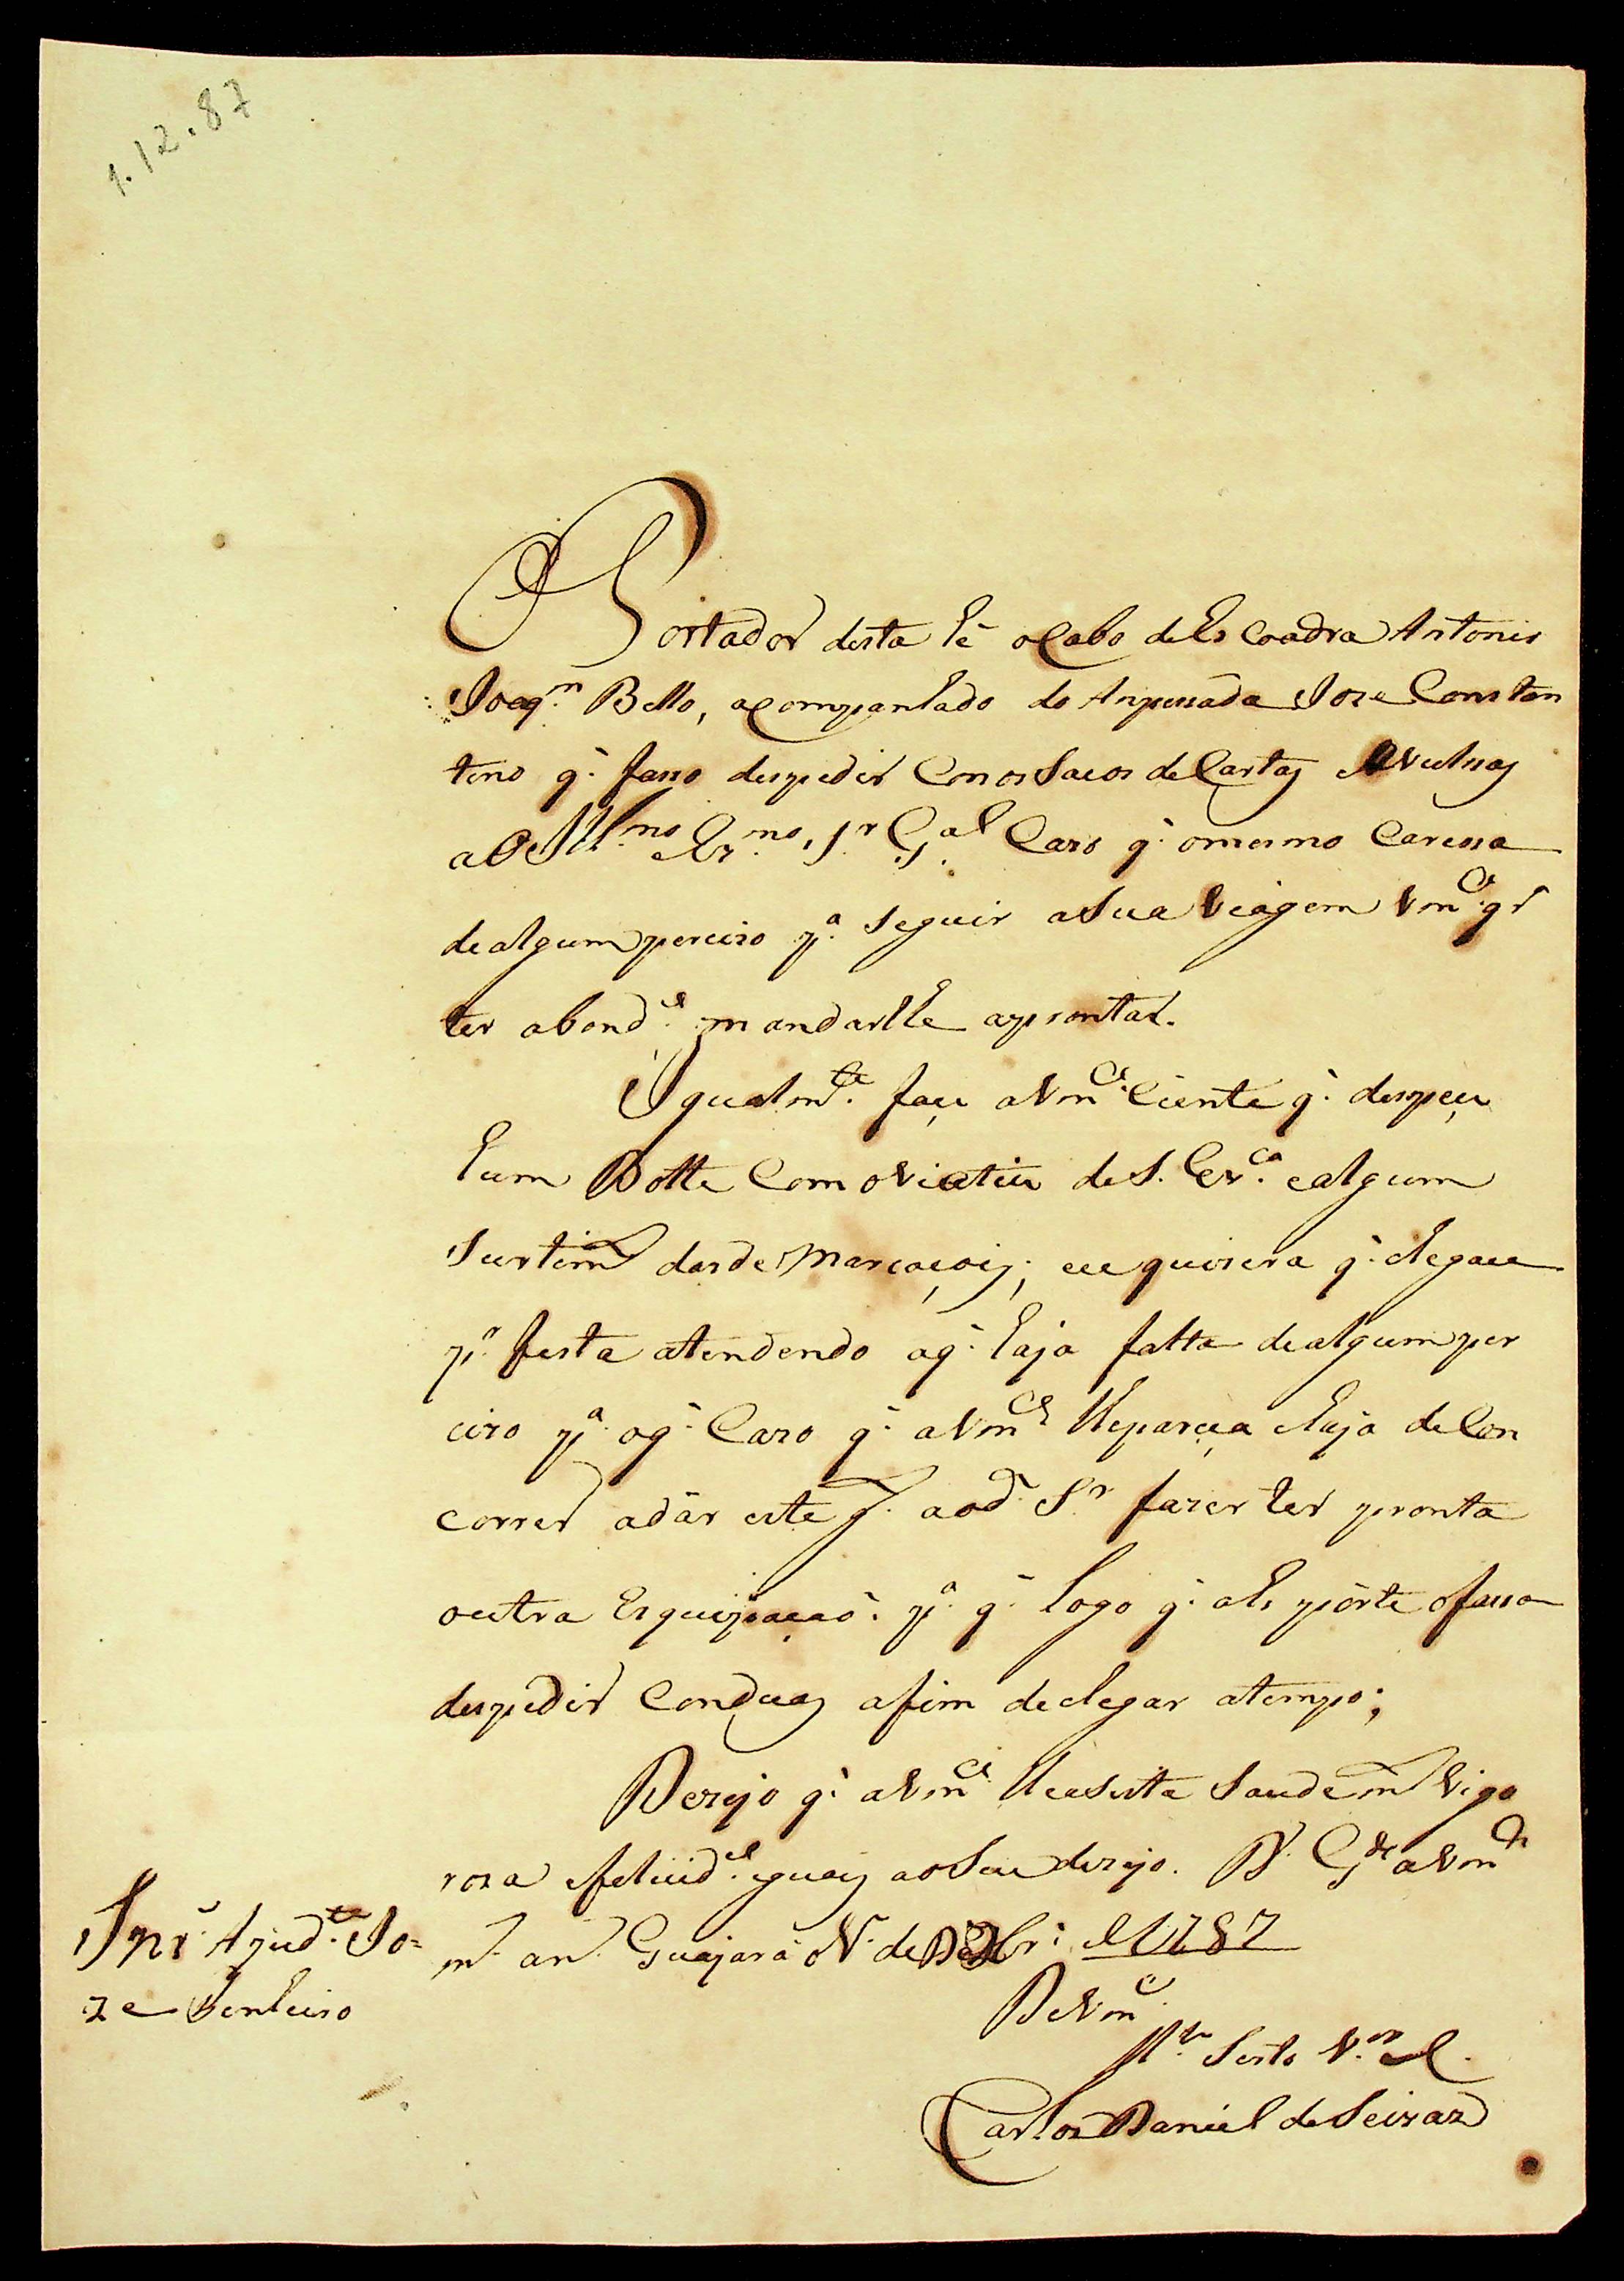 1.12.87
Portador desta hé o Cabo de Es Coadra Antonio
Joaq.m Bello, acompanhado do Anpessada Joze Constan
tino q.' fasso despedir Com os Sacos de Cartas Avulsas
ao Ill.mo Ex.mo S.r G.al Cazo q.' o mesmo Caressa
de algum percizo p.a seguir a Sua viagem Vm.ce q.r
ter abond.e mandarlhe aprontar.
Igualm.te faço a Vm.ce Ciente q.' despeço
hum Botte Com o Viatico de S. Ex.ca e algum
Surtim.to das de Marcaçois; eu quizera q.' chegace
p.a festa atendendo a q.' haja falta de algum per
cizo p.a o q.' Cazo q.' a Vm.ce lhe pareça e haja de Con
correr a dár este g. ao d.o S.r fazer ter pronta
outra Esquipaçaõ p.a q.' logo q.' ahi pórte o fassa
despedir Com duas afim de chegar a tempo;
Dezejo q.' a Vm.ce lhe asista Saude m.to vigo
roza e felicid.es iguais ao Seu dezejo. D.s G.de a Vm.ce
m.s an.s Guajará o 1.o de Dezbr.o de 1787
De Vm.ce
Snr. Ajud.te Jo=
ze Pinheiro
M.to Serto V.or e C.
Carlos Daniel de Seixas